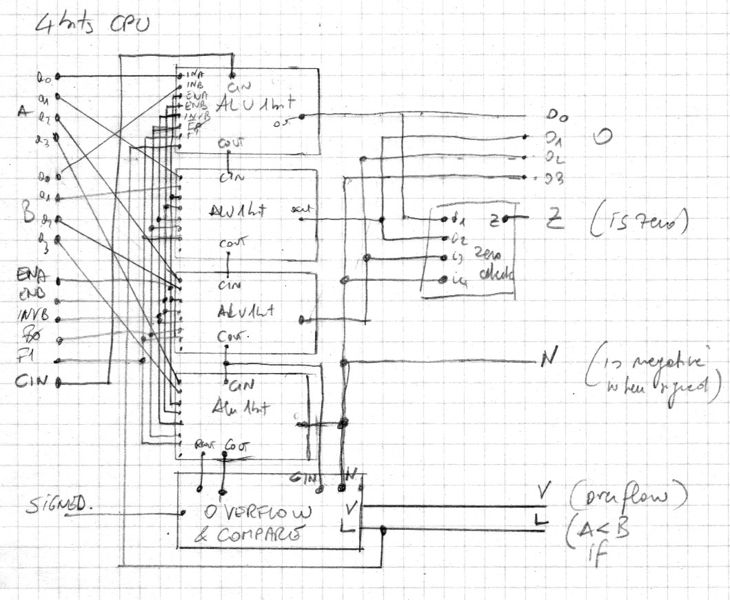 4 bits CPU
A
a0
a1
a2
a3
B
ENA
ENB
INVB
F0
F1
CIN
SIGNED.
INA
INB
ENA
ENB
INVB
F0
F1
CIN
ALU1bit
COUT
CIN
ALU1bit
out
COUT
CIN
ALU1bit
COUT.
CIN
Alu1bit
COUT
CIN
N
OVERFLOW
& COMPARE
V
L
O0
O1
O2
O3
O
i1
i2
i3
i4
Z
zero
Z (is zero)
N (is negative
when signed)
V (overflow)
L (A<B
if